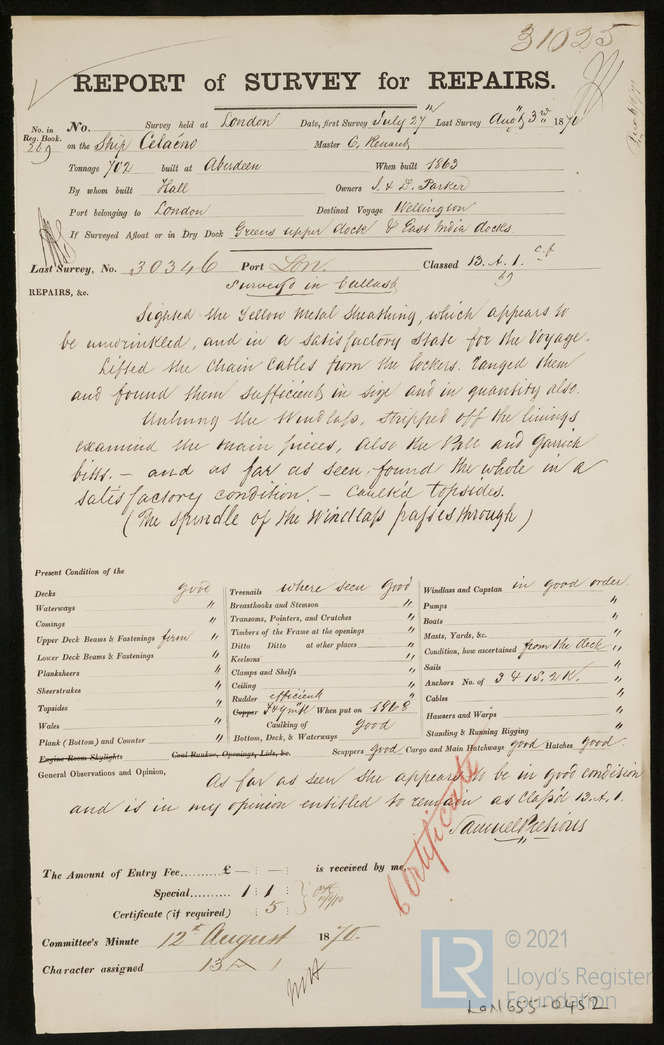 31025
REPORT of SURVEY for REPAIRS.
No. in Reg. Book. 269
No. Survey held at London Date, first Survey July 27th Last Survey Augt 3rd 1870
on the Ship Celaeno Master C. Renaut
Tonnage 702 built at Aberdeen When built 1863
By whom built Hall Owners J. & D. Parker
Port belonging to London Destined Voyage Wellington
If Surveyed Afloat or in Dry Dock Greens upper dock & East India docks
Last Survey, No. 30346 Port Lon. Classed 13.A.1. c.f 69
Surveyed in ballast
REPAIRS, &c.
Sighted the Yellow Metal Sheathing, which appears to
be unwrinkled, and in a satisfactory state for the Voyage.
Lifted the chain cables from the lockers. ranged them
and found them sufficient in size and in quantity also.
Unhung the Windlass, stripped off the linings
examined the main pieces, Also the Pall and Garrick
bitts. – and as far as seen, found the whole in a
satisfactory condition. – Caulk'd topsides.
(The spindle of the Windlass passes through)
Present Condition of the
Decks good
Waterways "
Comings "
Upper Deck Beams & Fastenings firm "
Lower Deck Beams & Fastenings "
Planksheers "
Sheerstrakes "
Topsides "
Wales "
Plank (Bottom) and Counter "
Engine Room Skylights Coal Bunker, Openings, Lids, &c.
Treenails where seen good
Breasthooks and Stemson "
Transoms, Pointers, and Crutches "
Timbers of the Frame at the openings "
Ditto Ditto at other places "
Keelsons "
Clamps and Shelfs "
Ceiling "
Rudder efficient
Copper When put on 1868
Caulking of good
Bottom, Deck, & Waterways
Windlass and Capstan in good order
Pumps "
Boats "
Masts, Yards, &c. "
Condition, how ascertained from the deck "
Sails "
Anchors No. of 3 & 1S. 2K. "
Cables "
Hausers and Warps "
Standing & Running Rigging "
Scuppers good Cargo and Main Hatchways good Hatches good
General Observations and Opinion,
As far as seen she appears to be in good condition
and is in my opinion entitled to remain as Class'd 13.A.1.
Samuel Pretious
Certificate
The Amount of Entry Fee £ — : — : is received by me,
Special 1 : 1
Certificate (if required) : 5
Committee's Minute 12th August 1870.
Character assigned 13 A 1
LR
© 2021
Lloyd's Register
Foundation
LON655-0452